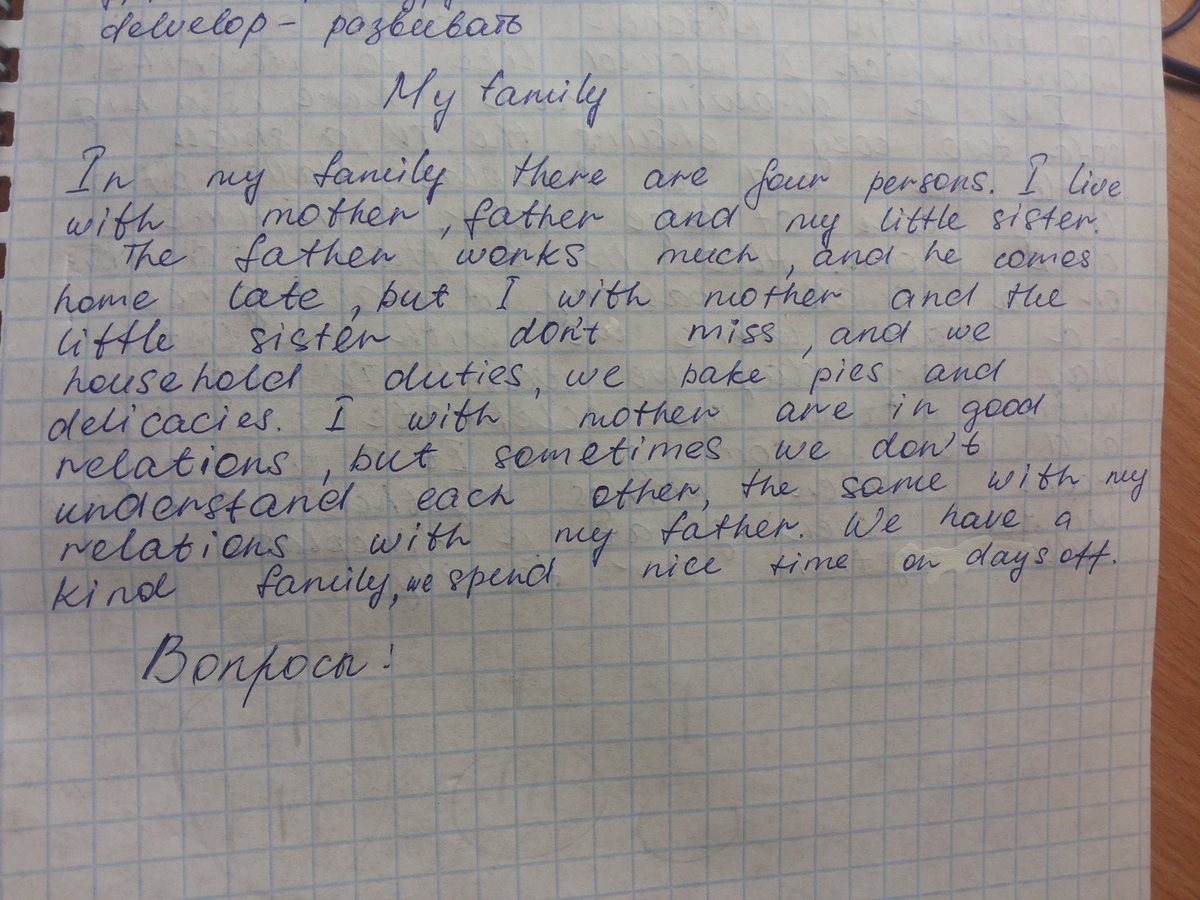 develop - развивать
My family
In my family there are four persons. I live
with mother, father and my little sister.
The father works much, and he comes
home late, but I with mother and the
little sister don't miss, and we
household duties, we bake pies and
delicacies. I with mother are in good
relations, but sometimes we don't
understand each other, the same with my
relations with my father. We have a
kind family, we spend nice time on days off.
Вопросы: